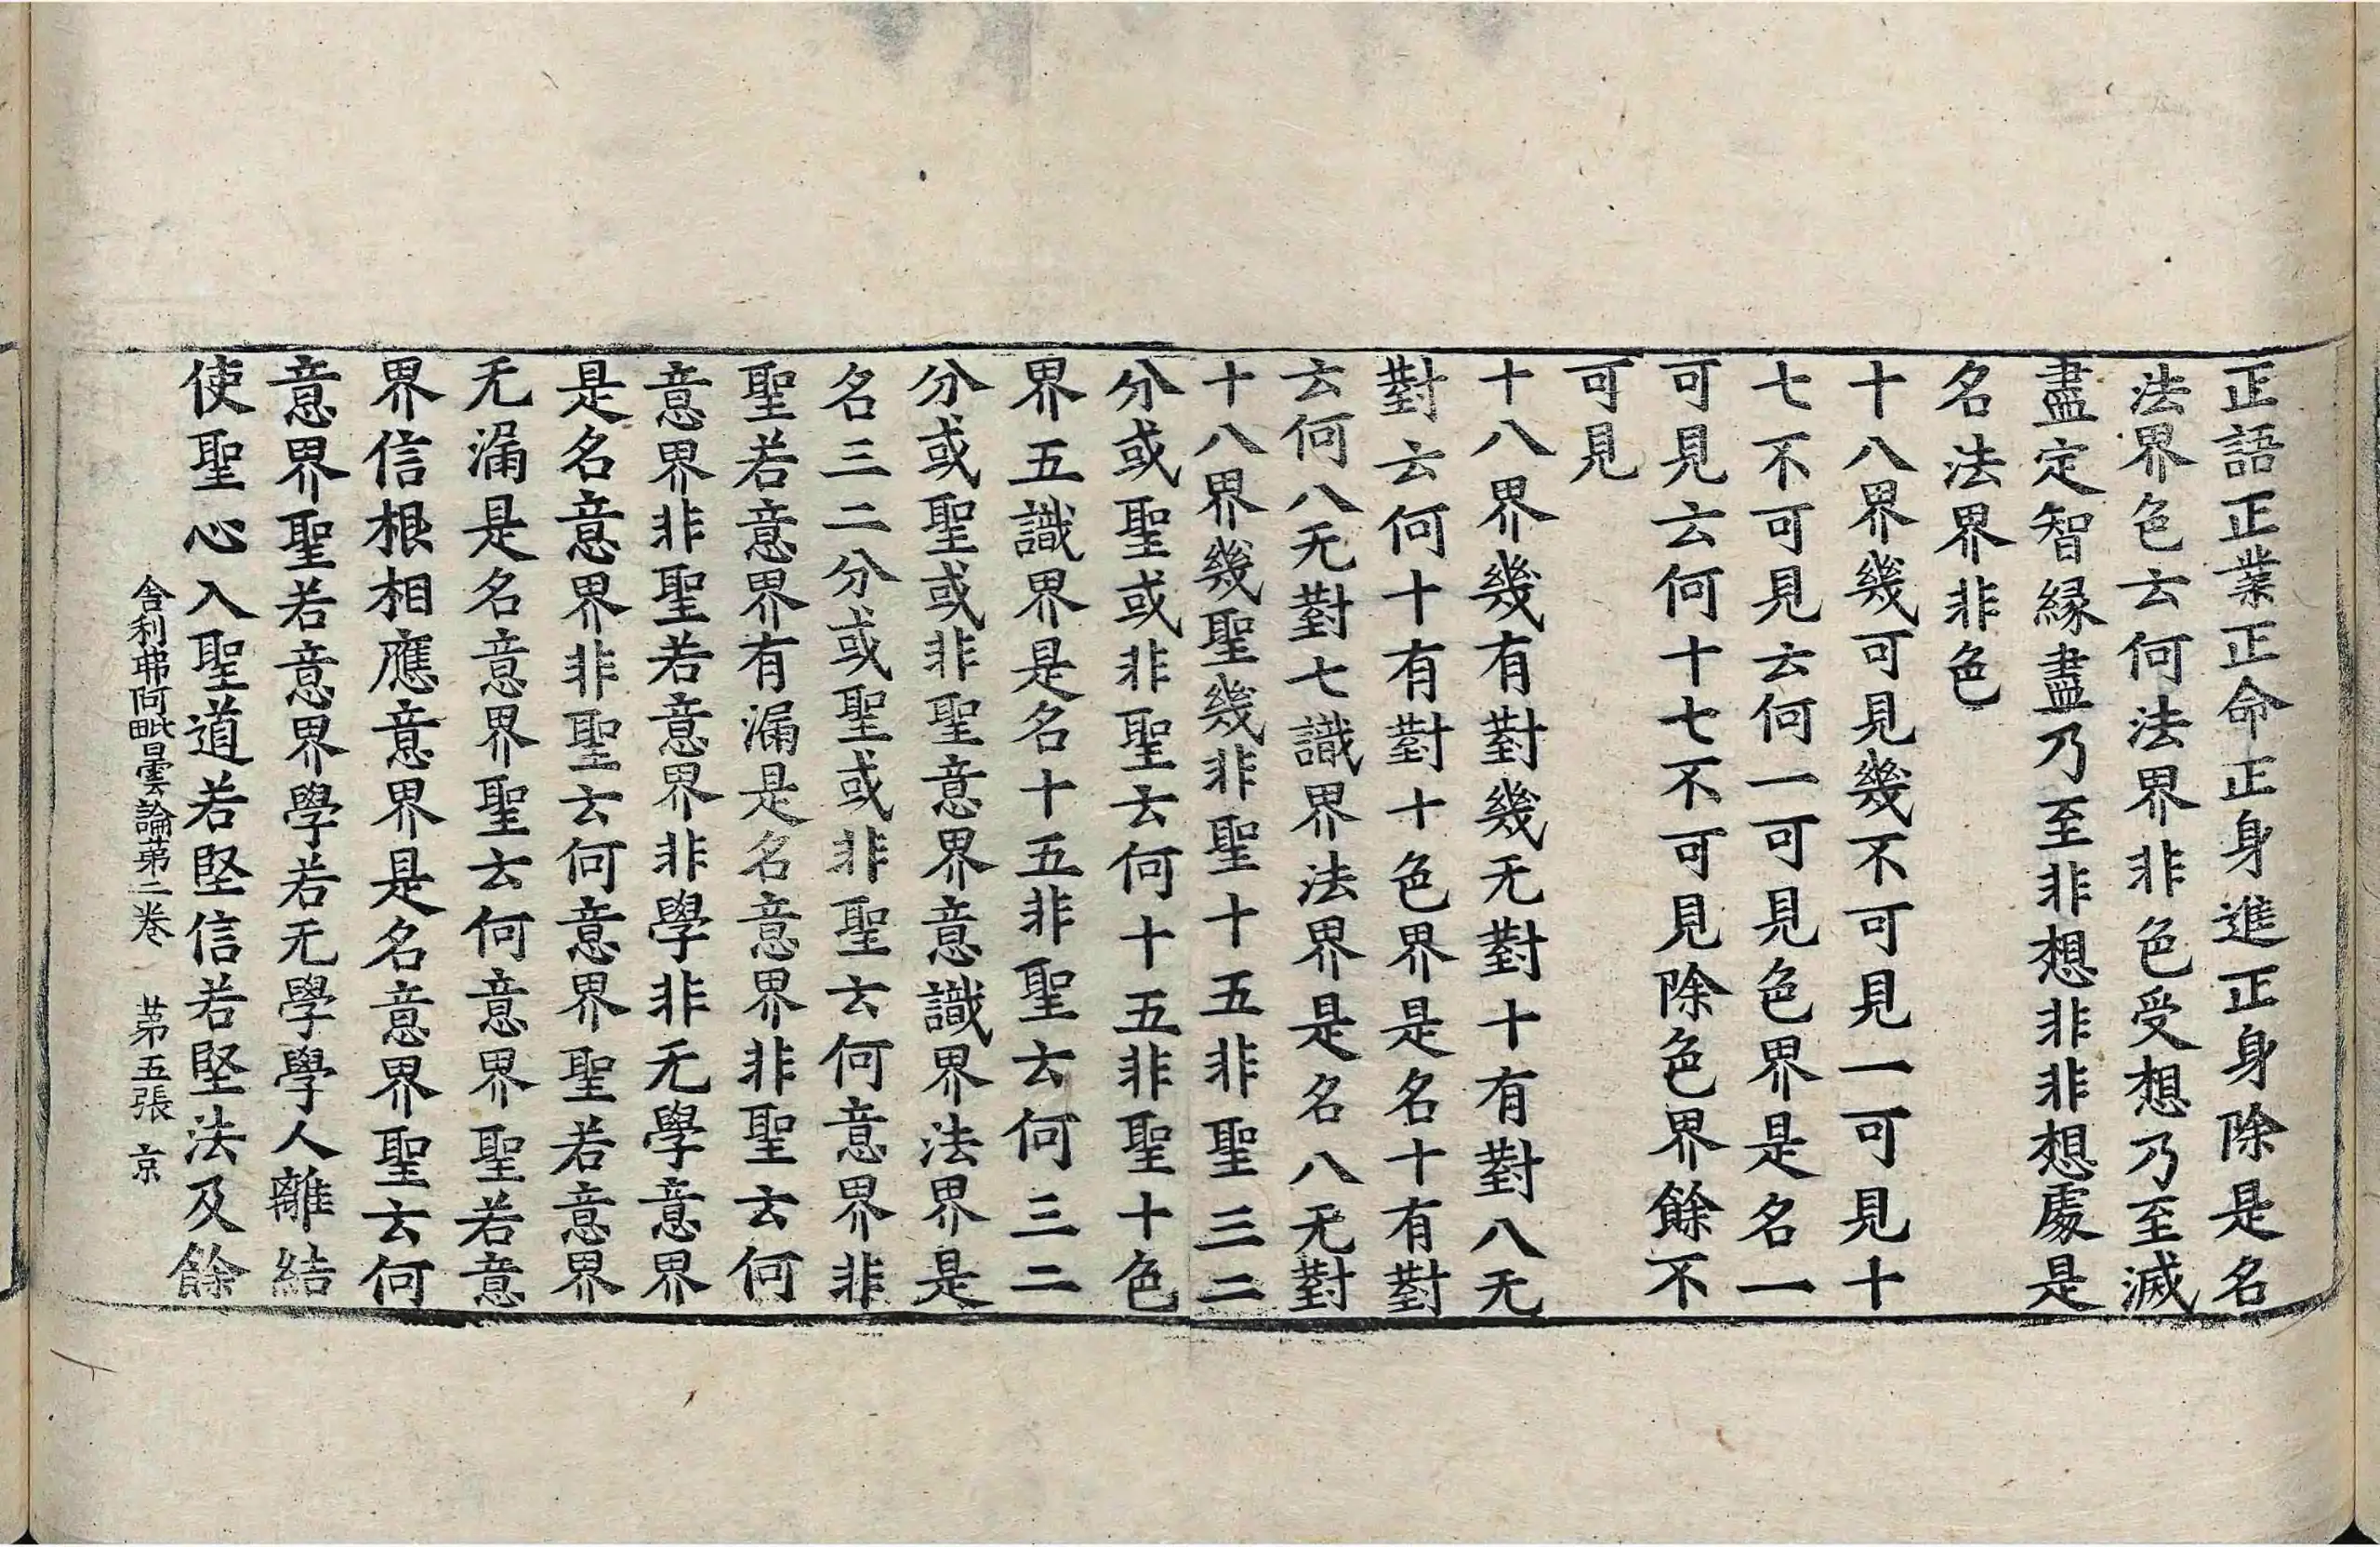 正語正業正命正身進正身除是名
法界色云何法界非色受想乃至滅
盡定智緣盡乃至非想非非想處是
名法界非色
十八界幾可見幾不可見一可見十
七不可見云何一可見色界是名一
可見云何十七不可見除色界餘不
可見
十八界幾有對幾无對十有對八无
對云何十有對十色界是名十有對
云何八无對七識界法界是名八无對
十八界幾聖幾非聖十五非聖三二
分或聖或非聖云何十五非聖十色
界五識界是名十五非聖云何三二
分或聖或非聖意界意識界法界是
名三二分或聖或非聖云何意界非
聖若意界有漏是名意界非聖云何
意界非聖若意界非學非无學意界
是名意界非聖云何意界聖若意界
无漏是名意界聖云何意界聖若意
界信根相應意界是名意界聖云何
意界聖若意界學若无學學人離結
使聖心入聖道若堅信若堅法及餘
舍利弗阿毗曇論第二卷 第五張 京